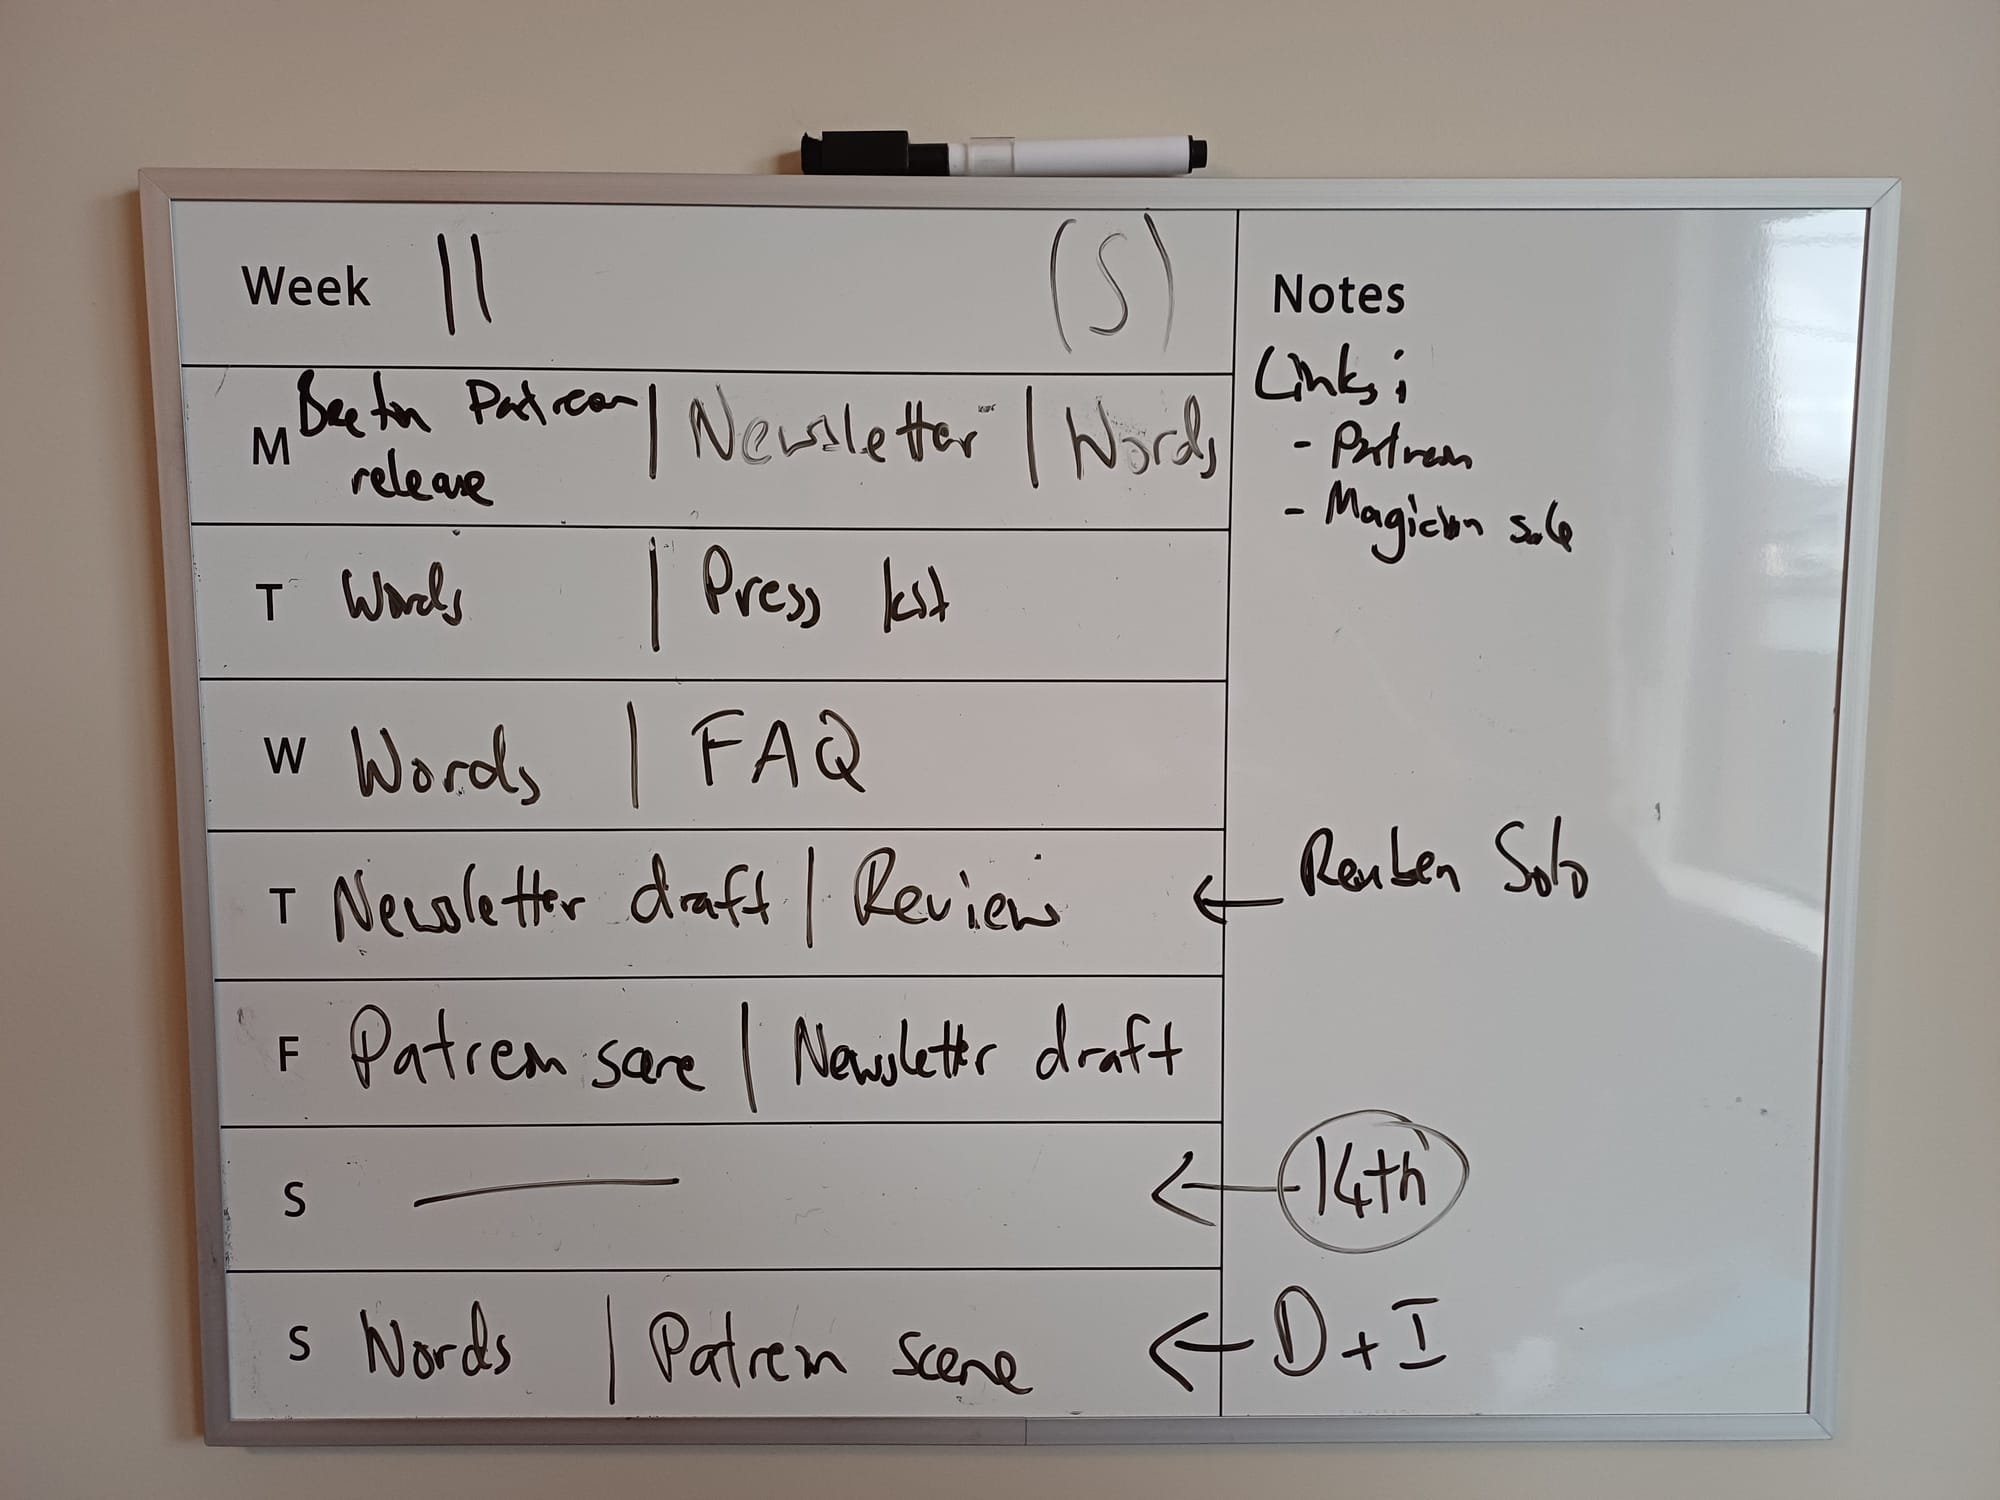 Week 11 (S)
M Beeton Patreon release | Newsletter | Words
T Words | Press kit
W Words | FAQ
T Newsletter draft | Review
F Patreon scene | Newsletter draft
S
S Words | Patreon scene
Notes
Links:
- Patreon
- Magician sale
Reuben Solo
14th
D + I